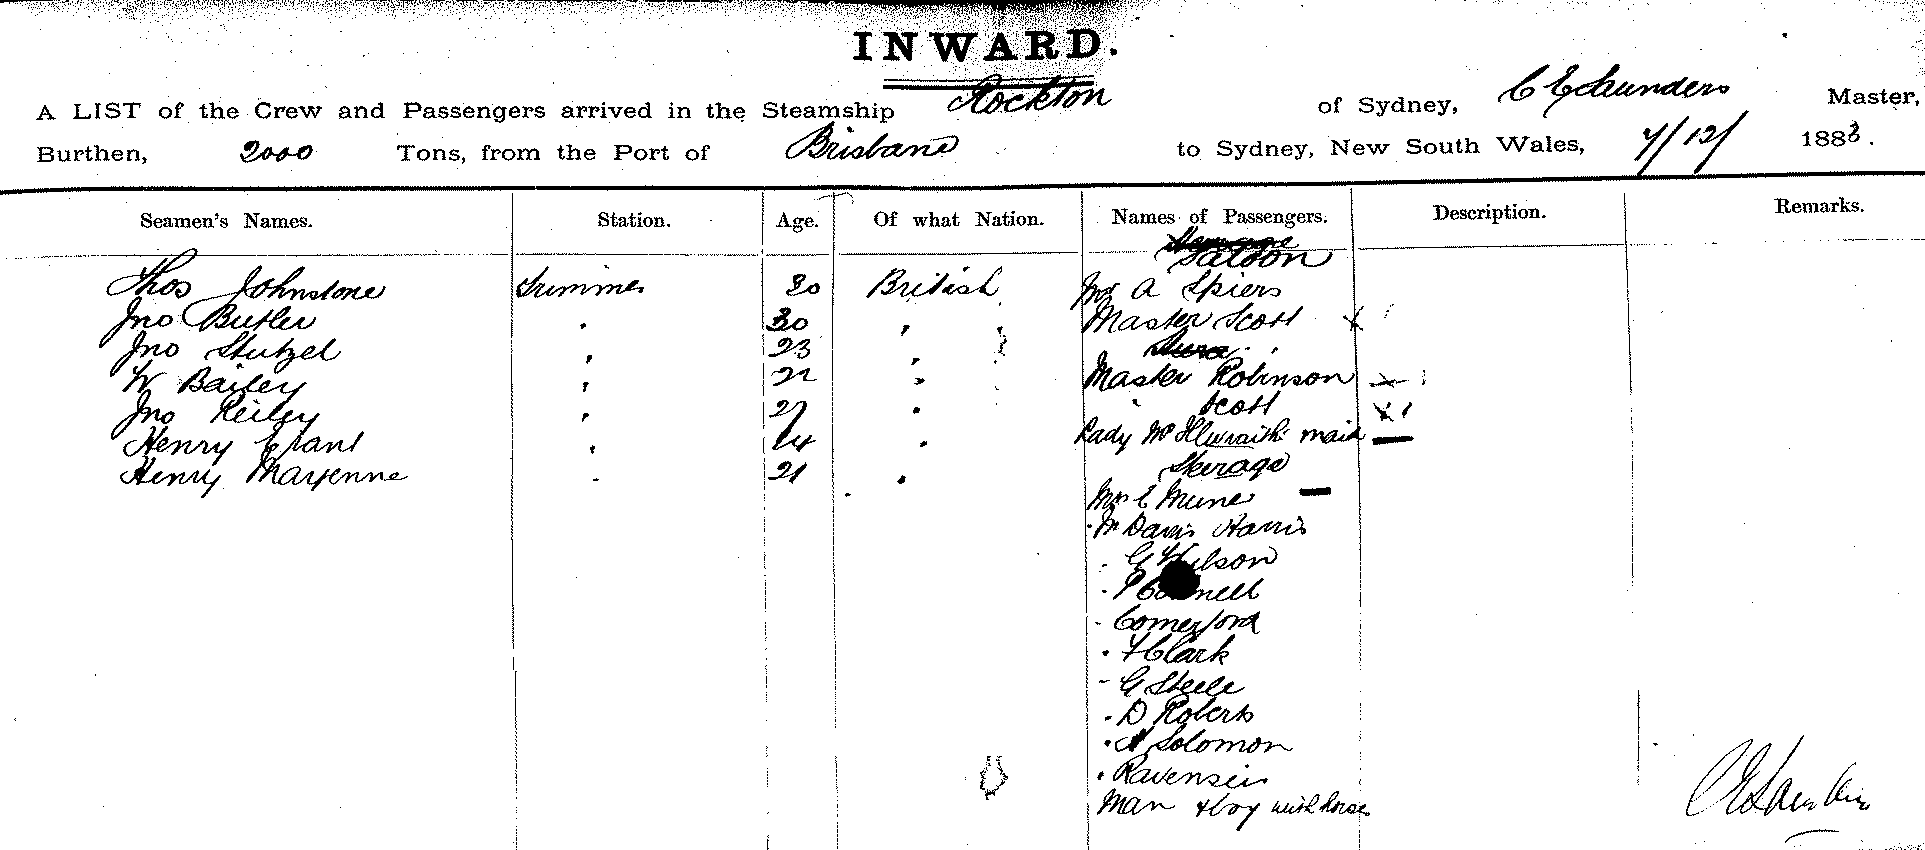 INWARD.
A LIST of the Crew and Passengers arrived in the Steamship Rockton of Sydney, C E Saunders Master,
Burthen, 2000 Tons, from the Port of Brisbane to Sydney, New South Wales, 7/12/ 1883.
Seamen's Names. Station. Age. Of what Nation. Names of Passengers. Description. Remarks.
Saloon
Thos Johnstone Trimmer 30 British Mr A Spiers
Jno Butler 30 Master Scott
Jno Stutzel 23
W Bailey 22 Master Robinson
Jno Reiley 27 Scott
Henry Grant 24 Lady McIlwraith maid
Henry Maryenne 21 Steerage
Mrs E Mune
Mr Davis Harris
G Wilson
P Connell
Comerford
F Clark
G Steele
D Roberts
A Solomon
Man & boy with horses
C E Saunders